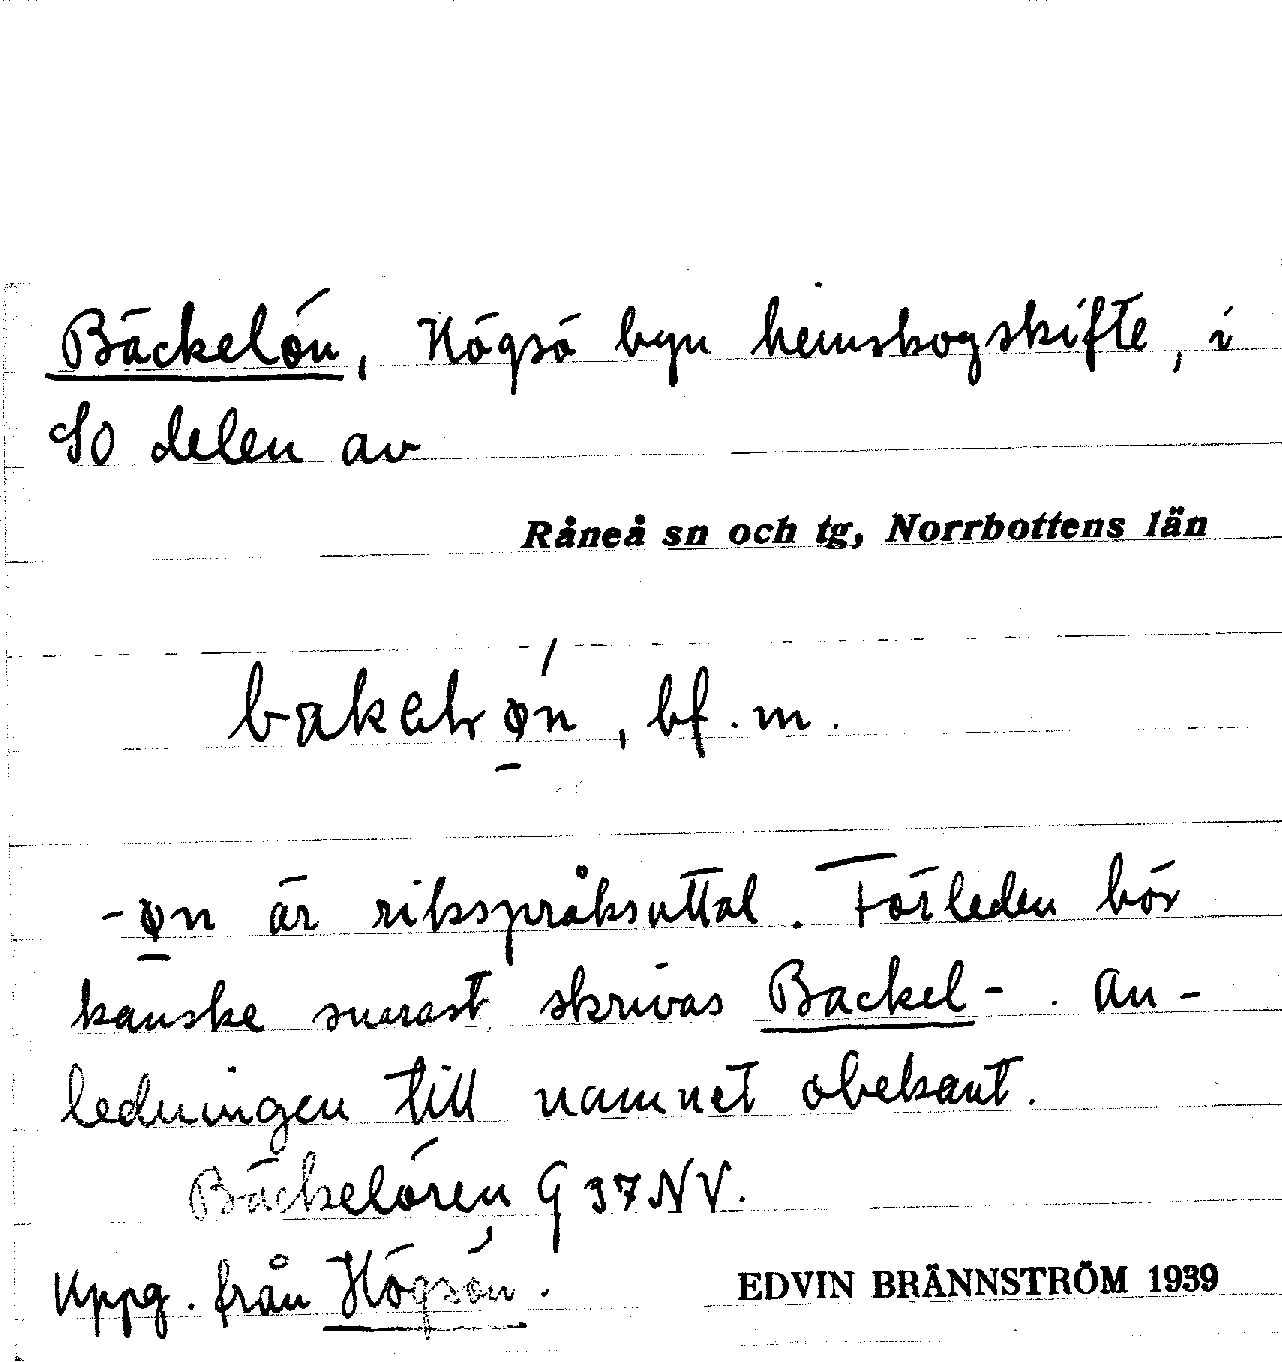 Bäckelön, Högsö byn hemskogskifte, i
SO delen av
Råneå sn och tg, Norrbottens län
bf. m.
-øn är riksspråksuttal. Förleden bör
kanske snarast skrivas Backel-. An-
ledningen till namnet obekant.
Bäckelören G 37 NV.
Uppg. från Högsön.
EDVIN BRÄNNSTRÖM 1939